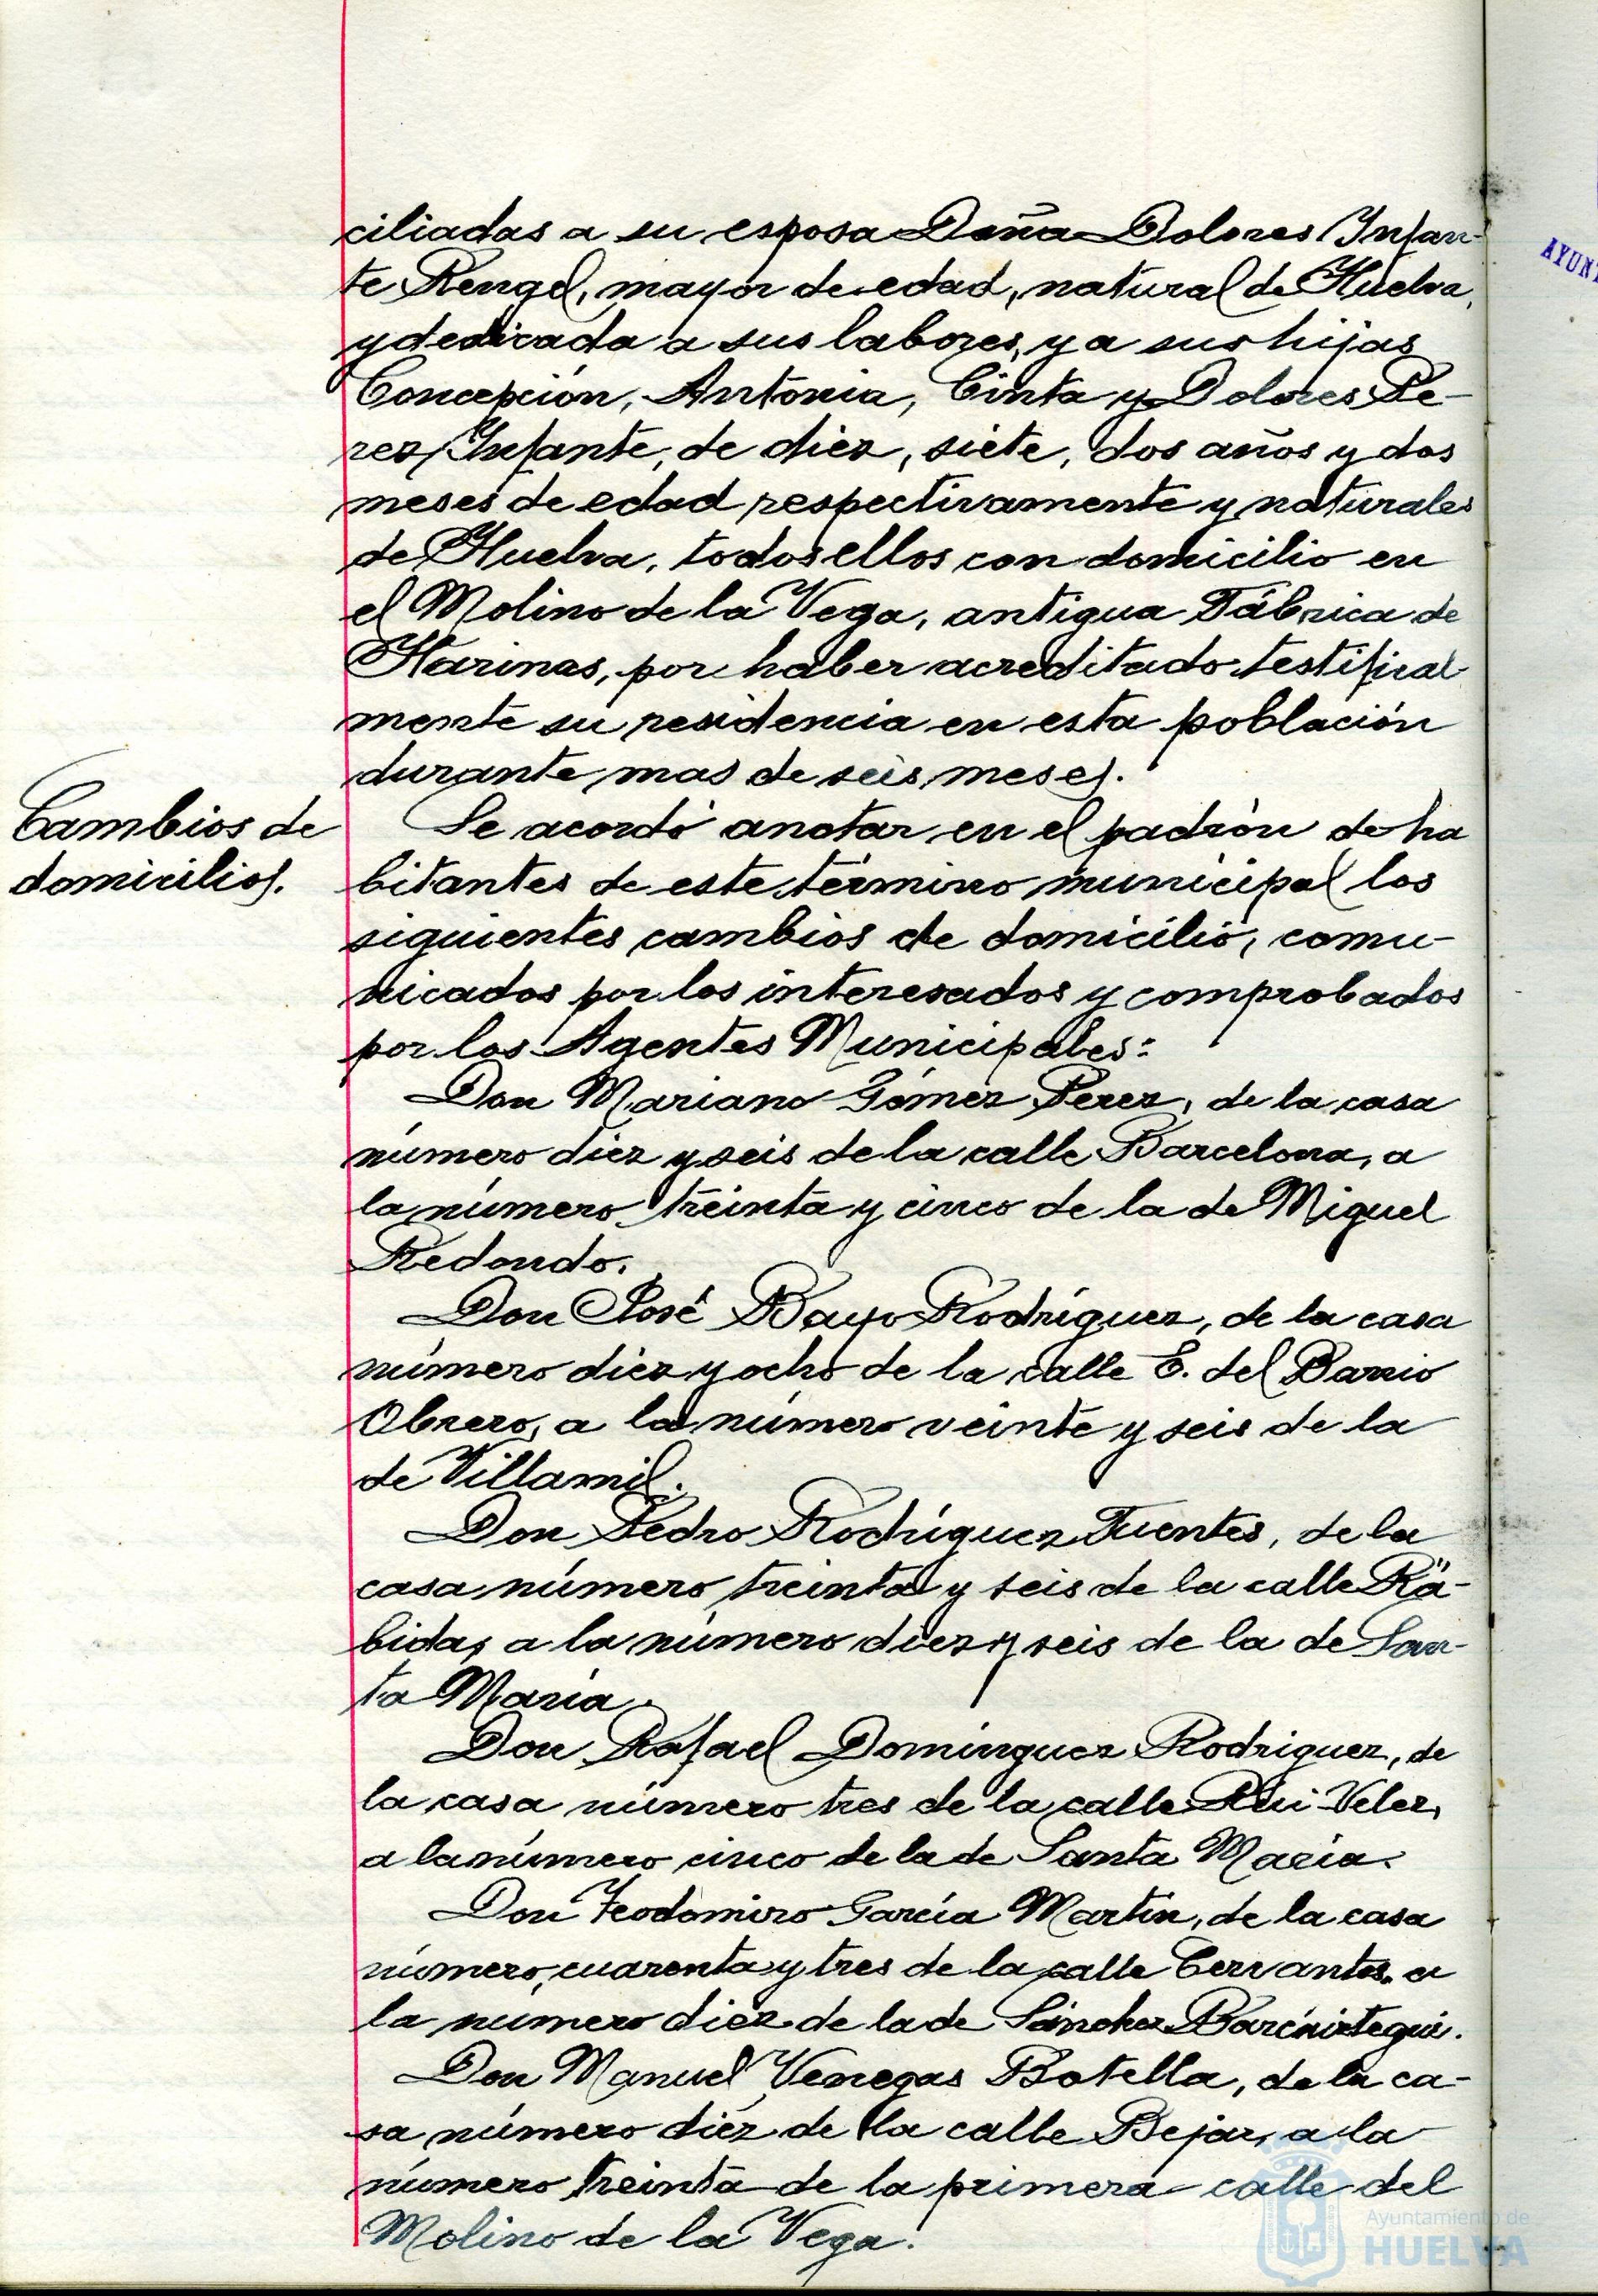 ciliadas a su esposa Doña Dolores Infan-
te Rengel, mayor de edad, natural de Huelva,
y dedicada a sus labores, y a sus hijas
Concepción, Antonia, Cinta y Dolores Pe-
rez Infante, de diez, siete, dos años y dos
meses de edad respectivamente y naturales
de Huelva, todos ellos con domicilio en
el Molino de la Vega, antigua Fábrica de
Harinas, por haber acreditado testifical
mente su residencia en esta población
durante mas de seis meses.
Cambios de
domicilios.
Se acordó anotar en el padrón de ha
bitantes de este término municipal los
siguientes cambios de domicilio, comu-
nicados por los interesados y comprobados
por los Agentes Municipales:
Don Mariano Gómez Perez, de la casa
número diez y seis de la calle Barcelona, a
la número treinta y cinco de la de Miguel
Redondo.
Don José Bayo Rodríguez, de la casa
número diez y ocho de la calle E. del Barrio
Obrero, a la número veinte y seis de la
de Villamil.
Don Pedro Rodríguez Fuentes, de la
casa número treinta y seis de la calle Rá-
bida, a la número diez y seis de la de San-
ta María.
Don Rafael Domínguez Rodriguez, de
la casa número tres de la calle Rui-Velez,
a la número cinco de la de Santa María.
Don Teodomiro García Martín, de la casa
número cuarenta y tres de la calle Cervantes, a
la número diez de la de Sánchez Barcáiztegui.
Don Manuel Venegas Botella, de la ca-
sa número diez de la calle Bejar, a la
número treinta de la primera calle del
Molino de la Vega.
AYUNT
Ayuntamiento de
HUELVA